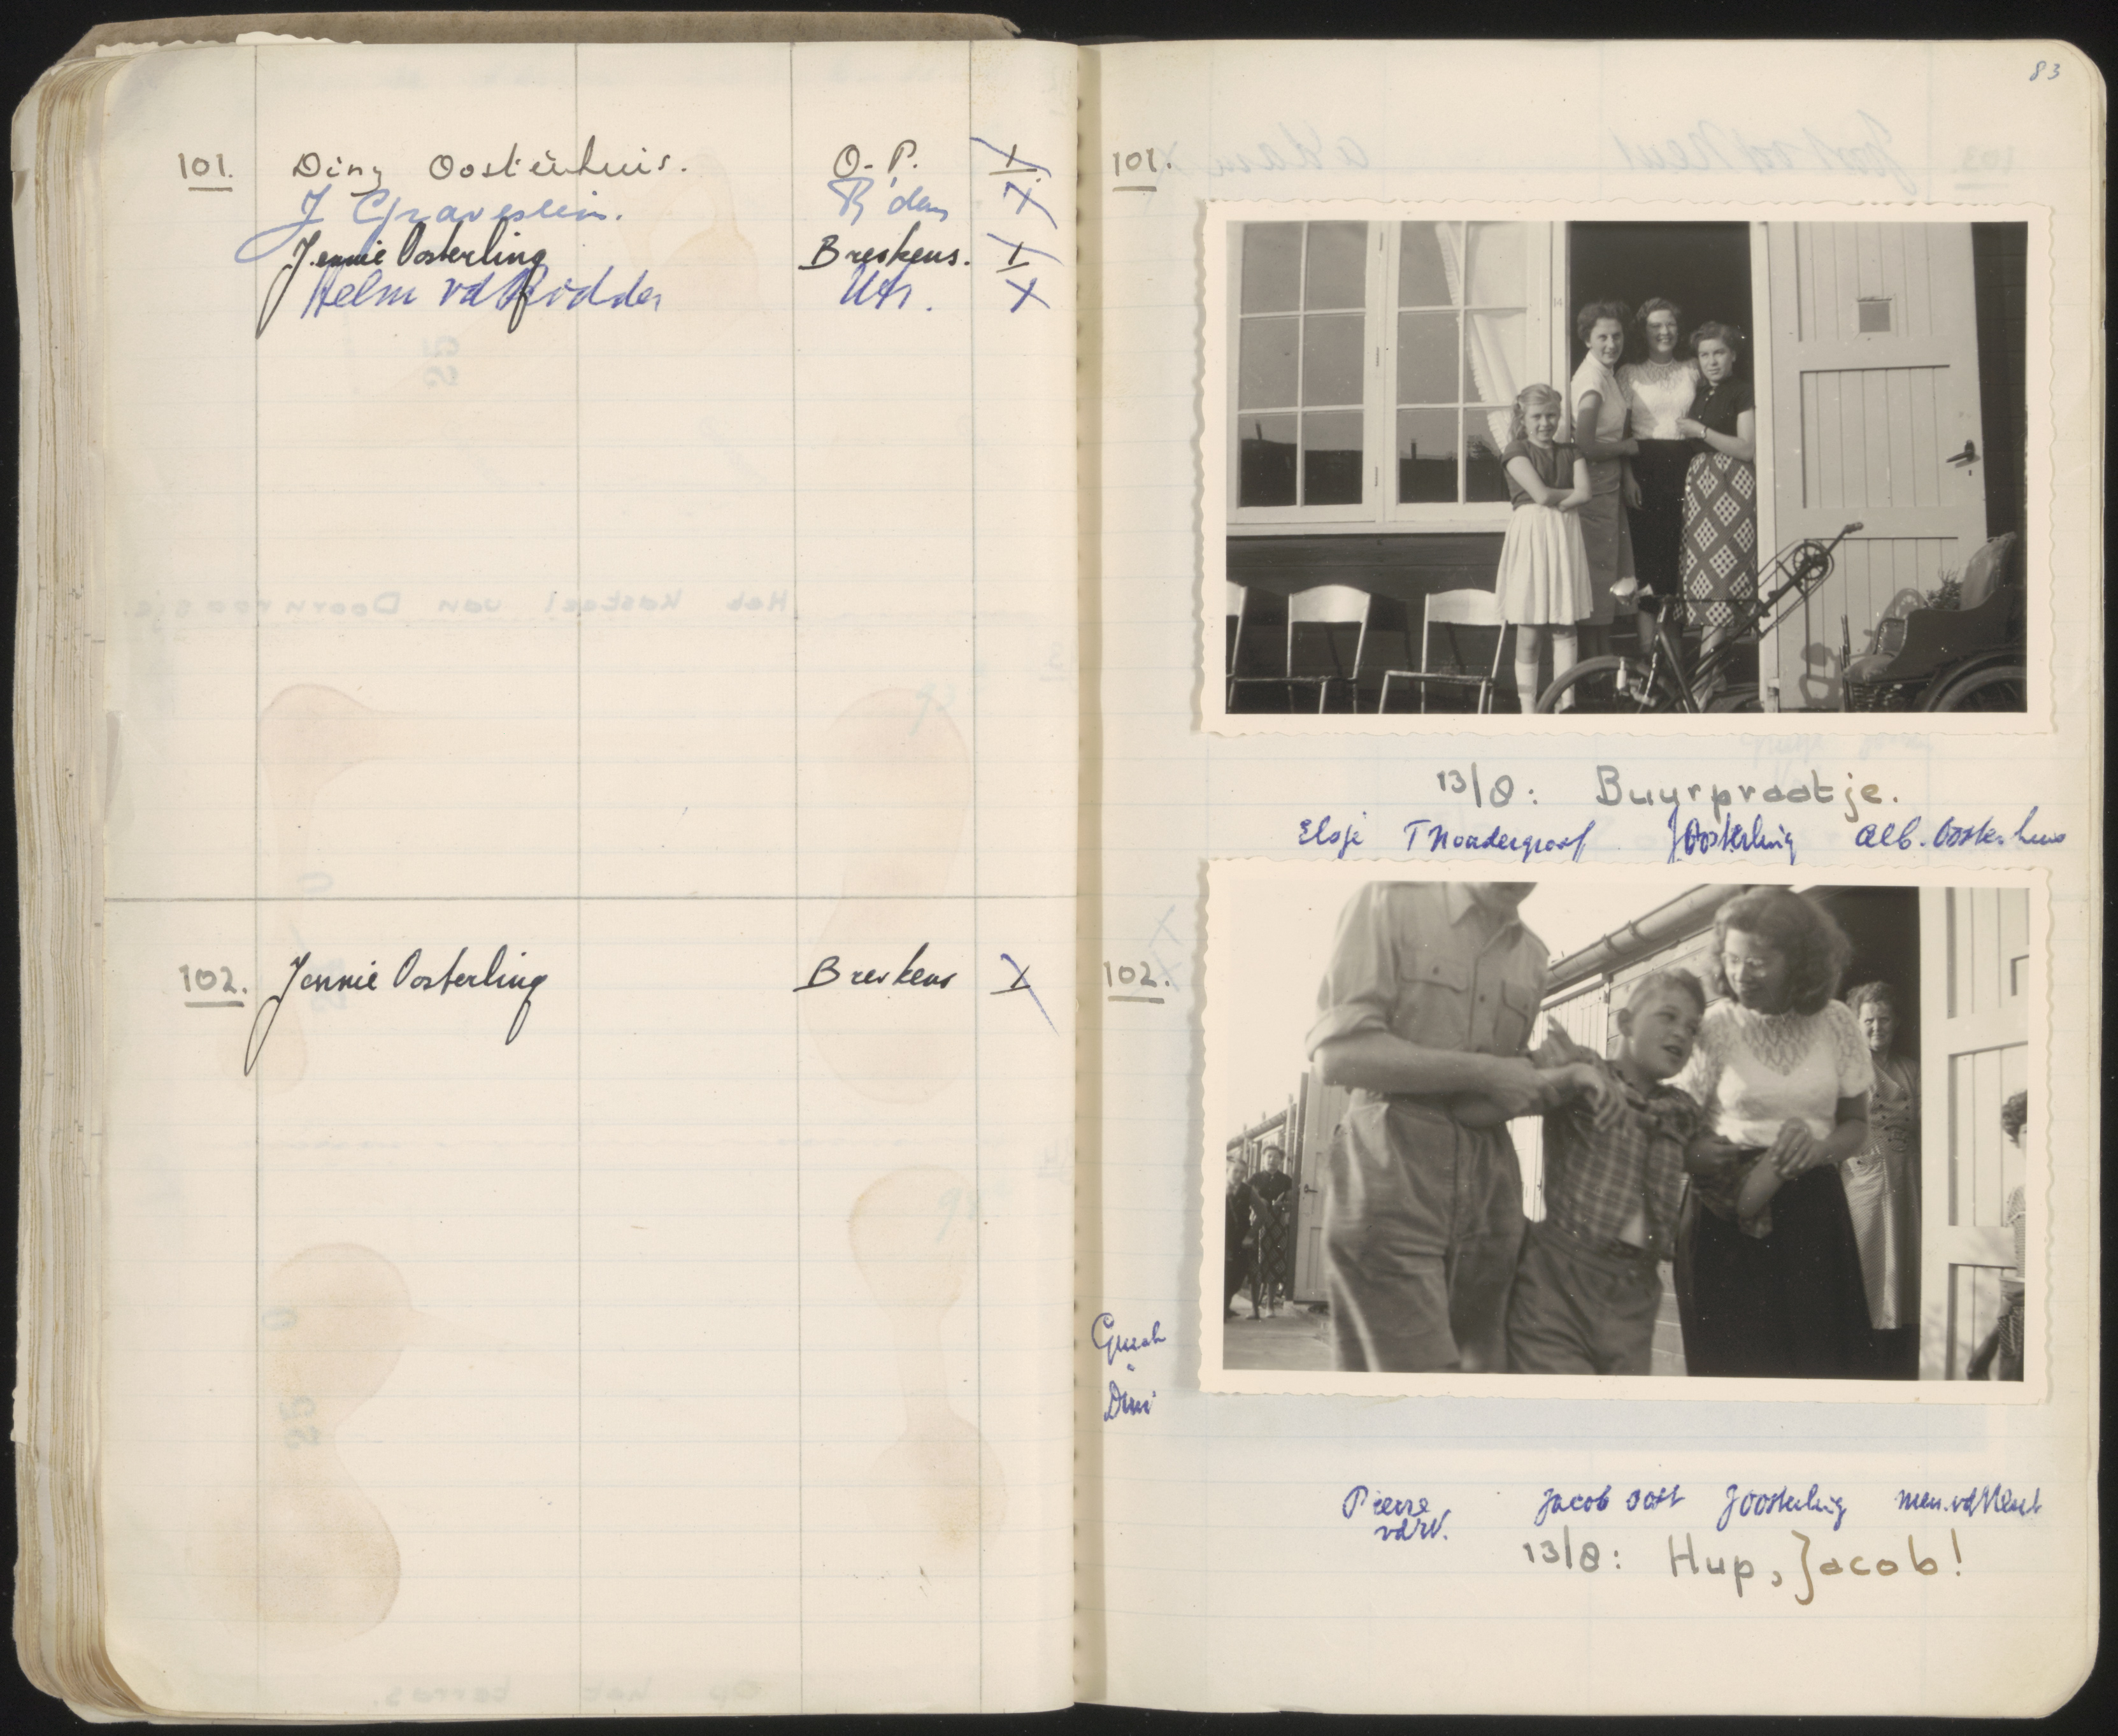 101. Diny Oosterhuis. O.P. X
J Gravestein. R'dam X
Jennie Oosterling Breskens. X
Helm vd Ridder Utr. X
102. Jennie Oosterling Breskens X
83
101.
13/8: Buurpraatje.
Elsje T Noordergraaf J Oosterling Alb. Oosterhuis
102.
Dini
Pierre Jacob Oost J Oosterling mevr. vd Neut
vdW.
13/8: Hup, Jacob!